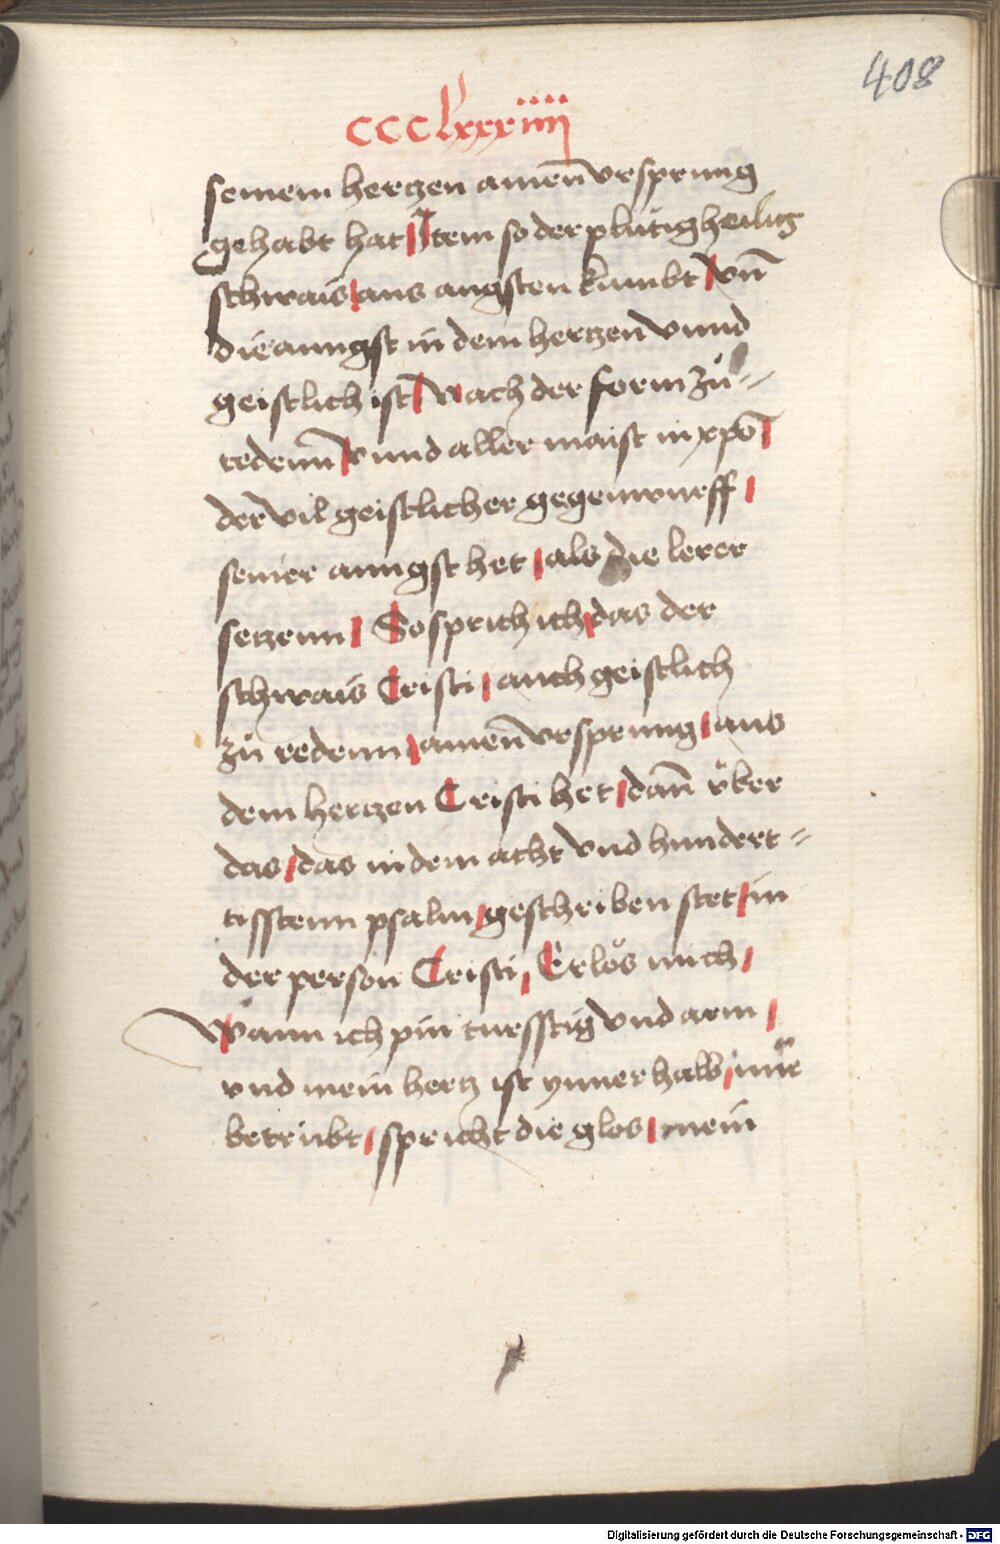 408
ccclxxxiiii
seinem hertzen ainen̄ vrsprung
gehabt hat Item so der plutig heilig
schwais aus angsten kumbt vn̄
die anngst in dem hertzen vnnd
geistlich ist Nach der form zů-
reden̄ vnnd aller maist in xp̄o
der vil geistlicher gegenwurff
seiner anngst het als die lerer
setzenn So sprich ich das der
schwais Cristi auch geistlich
zů redenn ainen̄ vrsprung aus
dem hertzen Cristi het dan̄ vber
das das in dem acht vnd hundert-
tisstenn psalm geschriben stet in
der person Cristi Erlös mich
Wann ich pin turfftig vnd arm
vnd mein hertz ist ynnerhalb in mir
betrubt spricht die glos mein
Digitalisierung gefördert durch die Deutsche Forschungsgemeinschaft - DFG